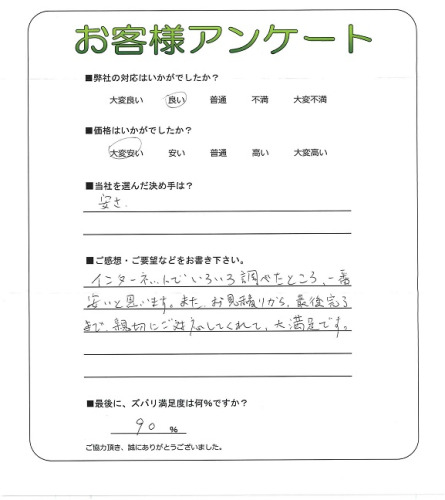 お客様アンケート
■弊社の対応はいかがでしたか？
大変良い 良い 普通 不満 大変不満
■価格はいかがでしたか？
大変安い 安い 普通 高い 大変高い
■当社を選んだ決め手は？
安さ.
■ご感想・ご要望などをお書き下さい。
インターネットでいろいろ調べたところ、一番
安いと思います。また、お見積りから、最後完了
まで、親切にご対応してくれて、大満足です。
■最後に、ズバリ満足度は何％ですか？
90 %
ご協力頂き、誠にありがとうございました。